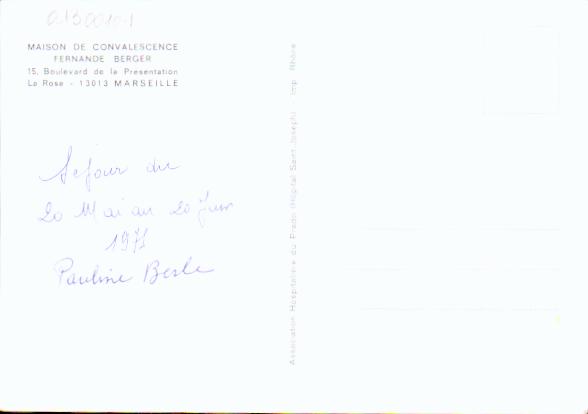 0130010-1
MAISON DE CONVALESCENCE
FERNANDE BERGER
15, Boulevard de la Présentation
La Rose - 13013 MARSEILLE
Séjour du
20 Mai au 20 Juin
1971
Pauline Besle
Association Hospitalière du Prado (Hôpital Saint Joseph) - Imp. Rhône